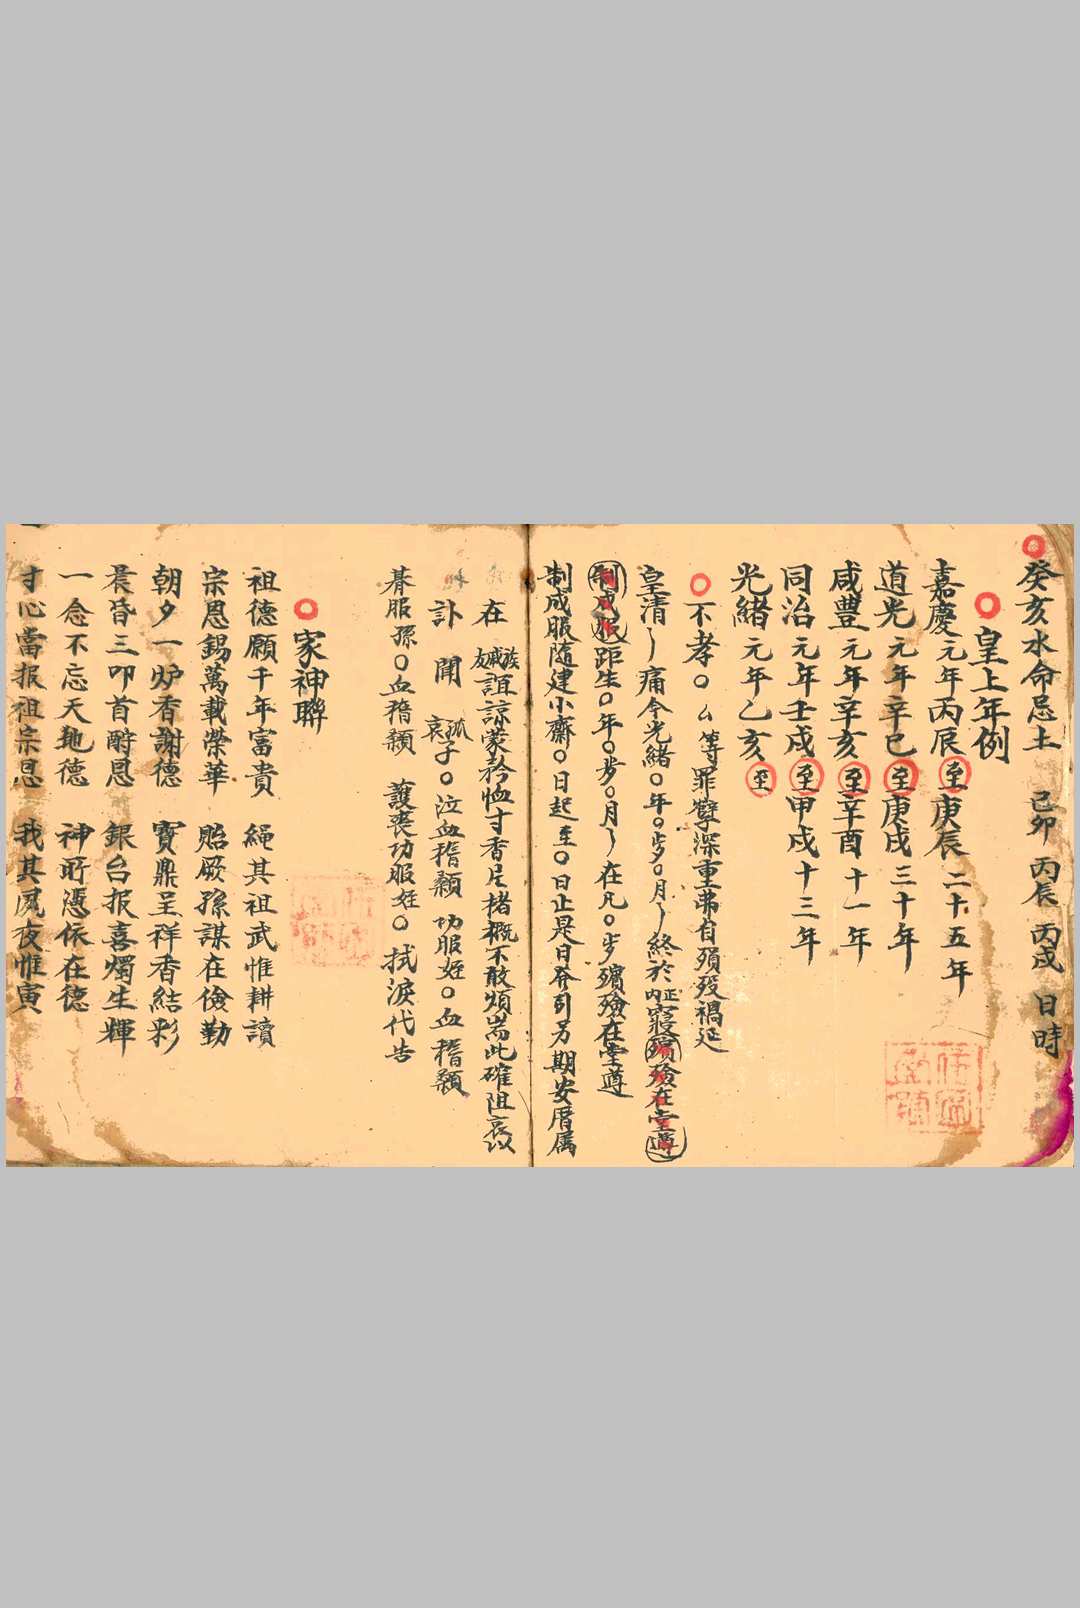 ○癸亥水命忌土 己卯 丙辰 丙戌 日時
○皇上年例
嘉慶元年丙辰至庚辰二十五年
道光元年辛巳至庚戌三十年
咸豐元年辛亥至辛酉十一年
同治元年壬戌至甲戌十三年
光緒元年乙亥至
○不孝○ㄙ等罪孽深重弗自殞歿禍延
皇清 痛今光緒○年○歩○月 終於內正寢殯殮在堂遵
制成服距生○年○歩○月 在凡○歩殯殮在堂遵
制成服隨建小齋○日起至○日止是日發引另期安厝属
在族戚友誼諒蒙矜恤寸香尼楮概不敢煩耑此確阻哀以
訃聞 孤哀子○泣血稽顙 功服姪○血稽顙
朞服孫○血稽顙 護喪功服姪○拭淚代告
○家神聯
祖德願千年富貴 繩其祖武惟耕讀
宗恩錫萬載榮華 貽厥孫謀在儉勤
朝夕一炉香謝德 寶鼎呈祥香結彩
晨昏三叩首酧恩 銀台报喜燭生輝
一念不忘天地德 神所憑依在德
寸心當报祖宗恩 我其夙夜惟寅